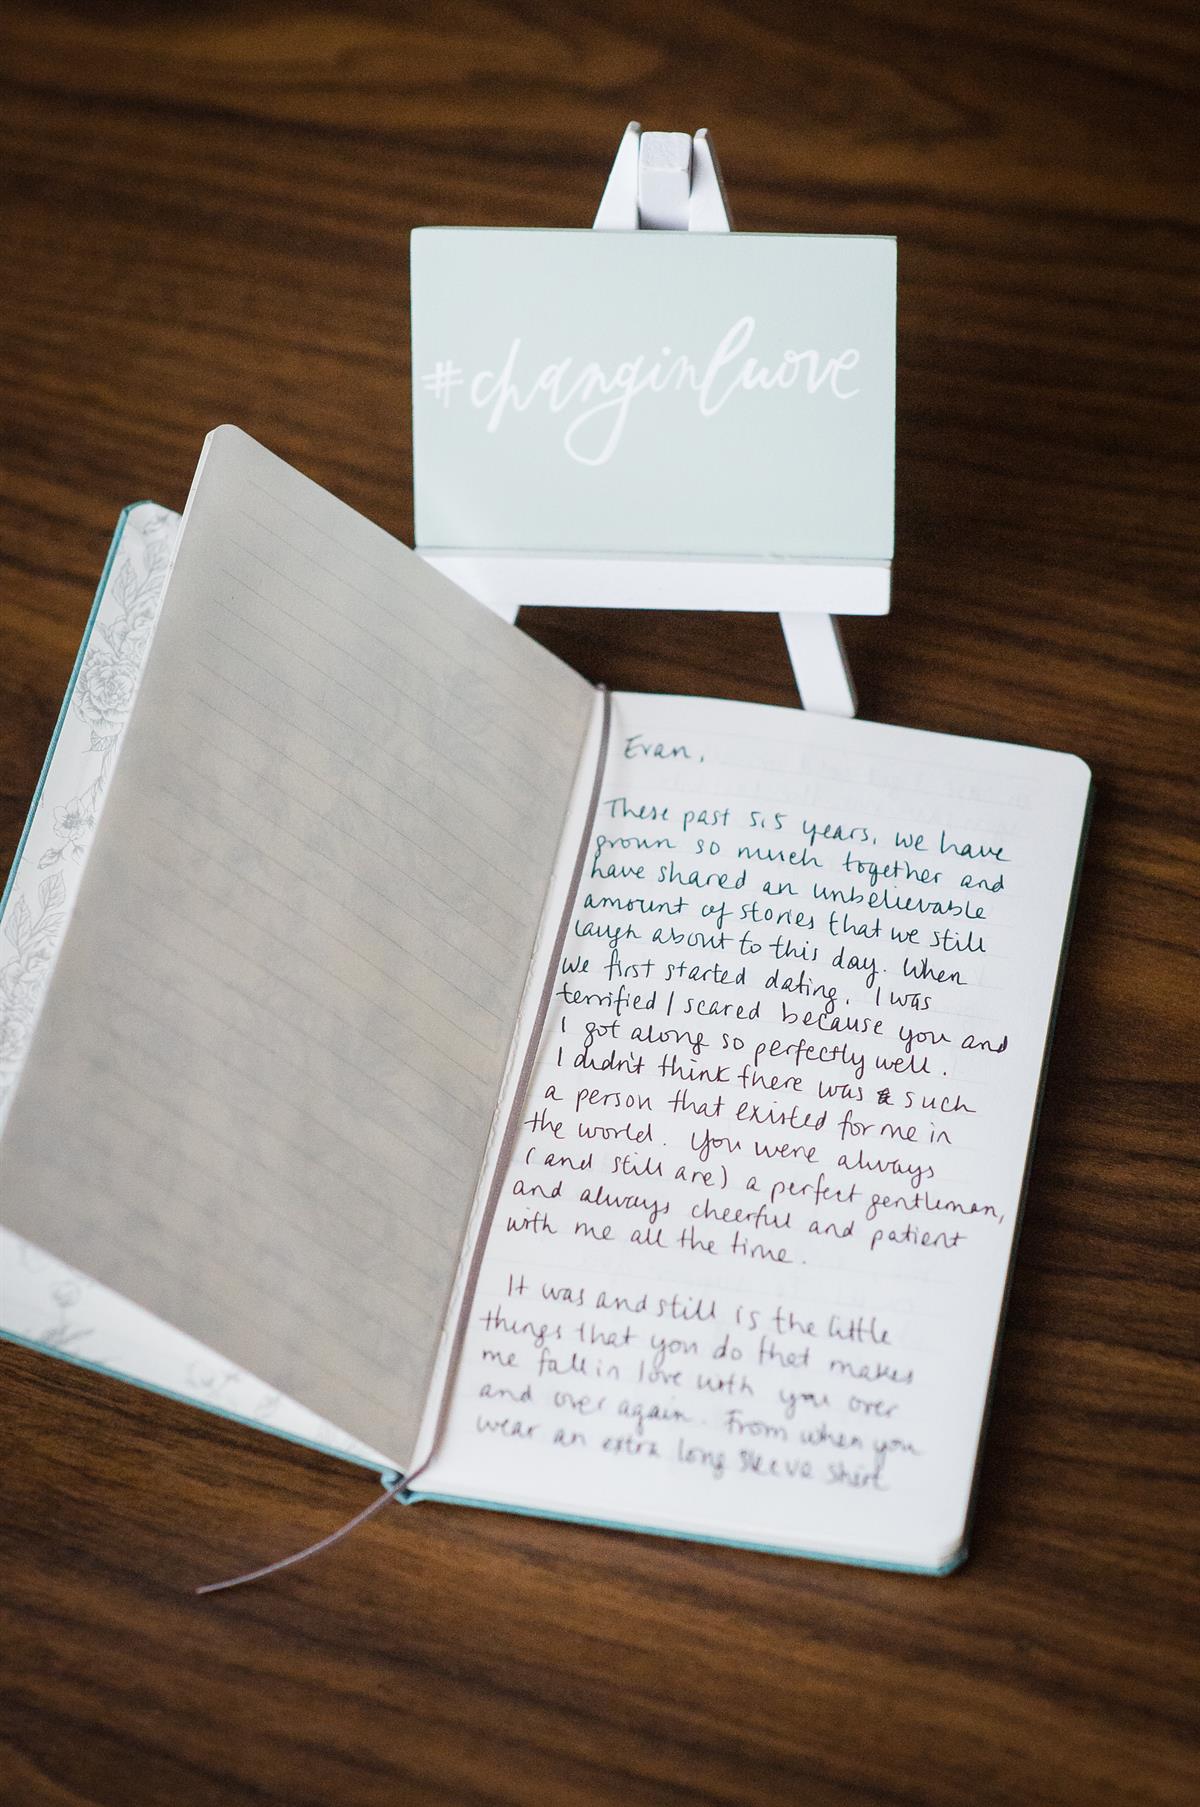 #changinluove
Evan,
These past 5.5 years, we have
grown so much together and
have shared an unbelievable
amount of stories that we still
laugh about to this day. When
we first started dating, I was
terrified / scared because you and
I got along so perfectly well.
I didn't think there was such
a person that existed for me in
the world. You were always
(and still are) a perfect gentleman,
and always cheerful and patient
with me all the time.
It was and still is the little
things that you do that makes
me fall in love with you over
and over again. From when you
wear an extra long sleeve shirt